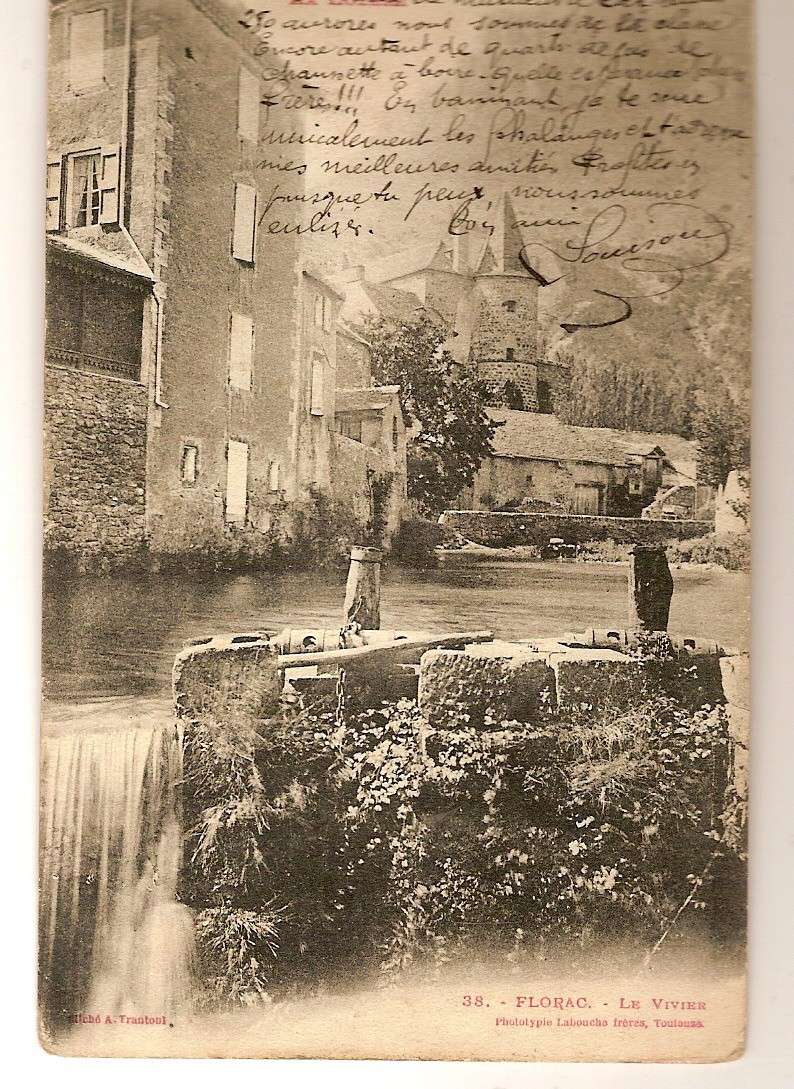 250 aurores nous sommes de la classe
Encore autant de quarts de jus de
chaussette à boire. Quelle
frères!!! En banissant, je te serre
amicalement les phalanges et t'adresse
mes meilleures amitiés Profites en
puisque tu peux, nous sommes
enlizés. Ton ami
Louison
38. - FLORAC. - LE VIVIER
Phototypie Labouche frères, Toulouse
Cliché A. Trantoul